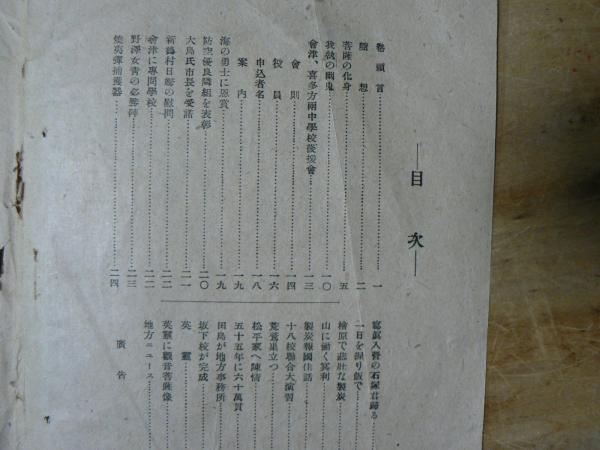 目次
卷頭言……一
隨想……二
菩薩の化身……五
我執の幽鬼……一〇
會津、喜多方兩中學校後援會……一三
會則……一四
役員……一六
申込者名……一八
案内……一九
海の勇士に恩賞……一九
防空優良隣組を表彰……二〇
大島氏市長を受諾……二一
新鶴村日婦の慰問……二二
會津に專門學校……二二
野澤女青の必勝陣……二三
燒夷彈捕獲器……二四
寫眞入賞の石塚君歸る
一日を握り飯で
檜原で悲壯な製炭
山に働く冥利
製炭報國佳話
十八校聯合大演習
荒鷲巣立つ
松平家へ陳情
五十五年に六十萬貫
田島が地方事務所
坂下校が完成
英靈
英靈に觀音菩薩像
地方ニュース
廣告